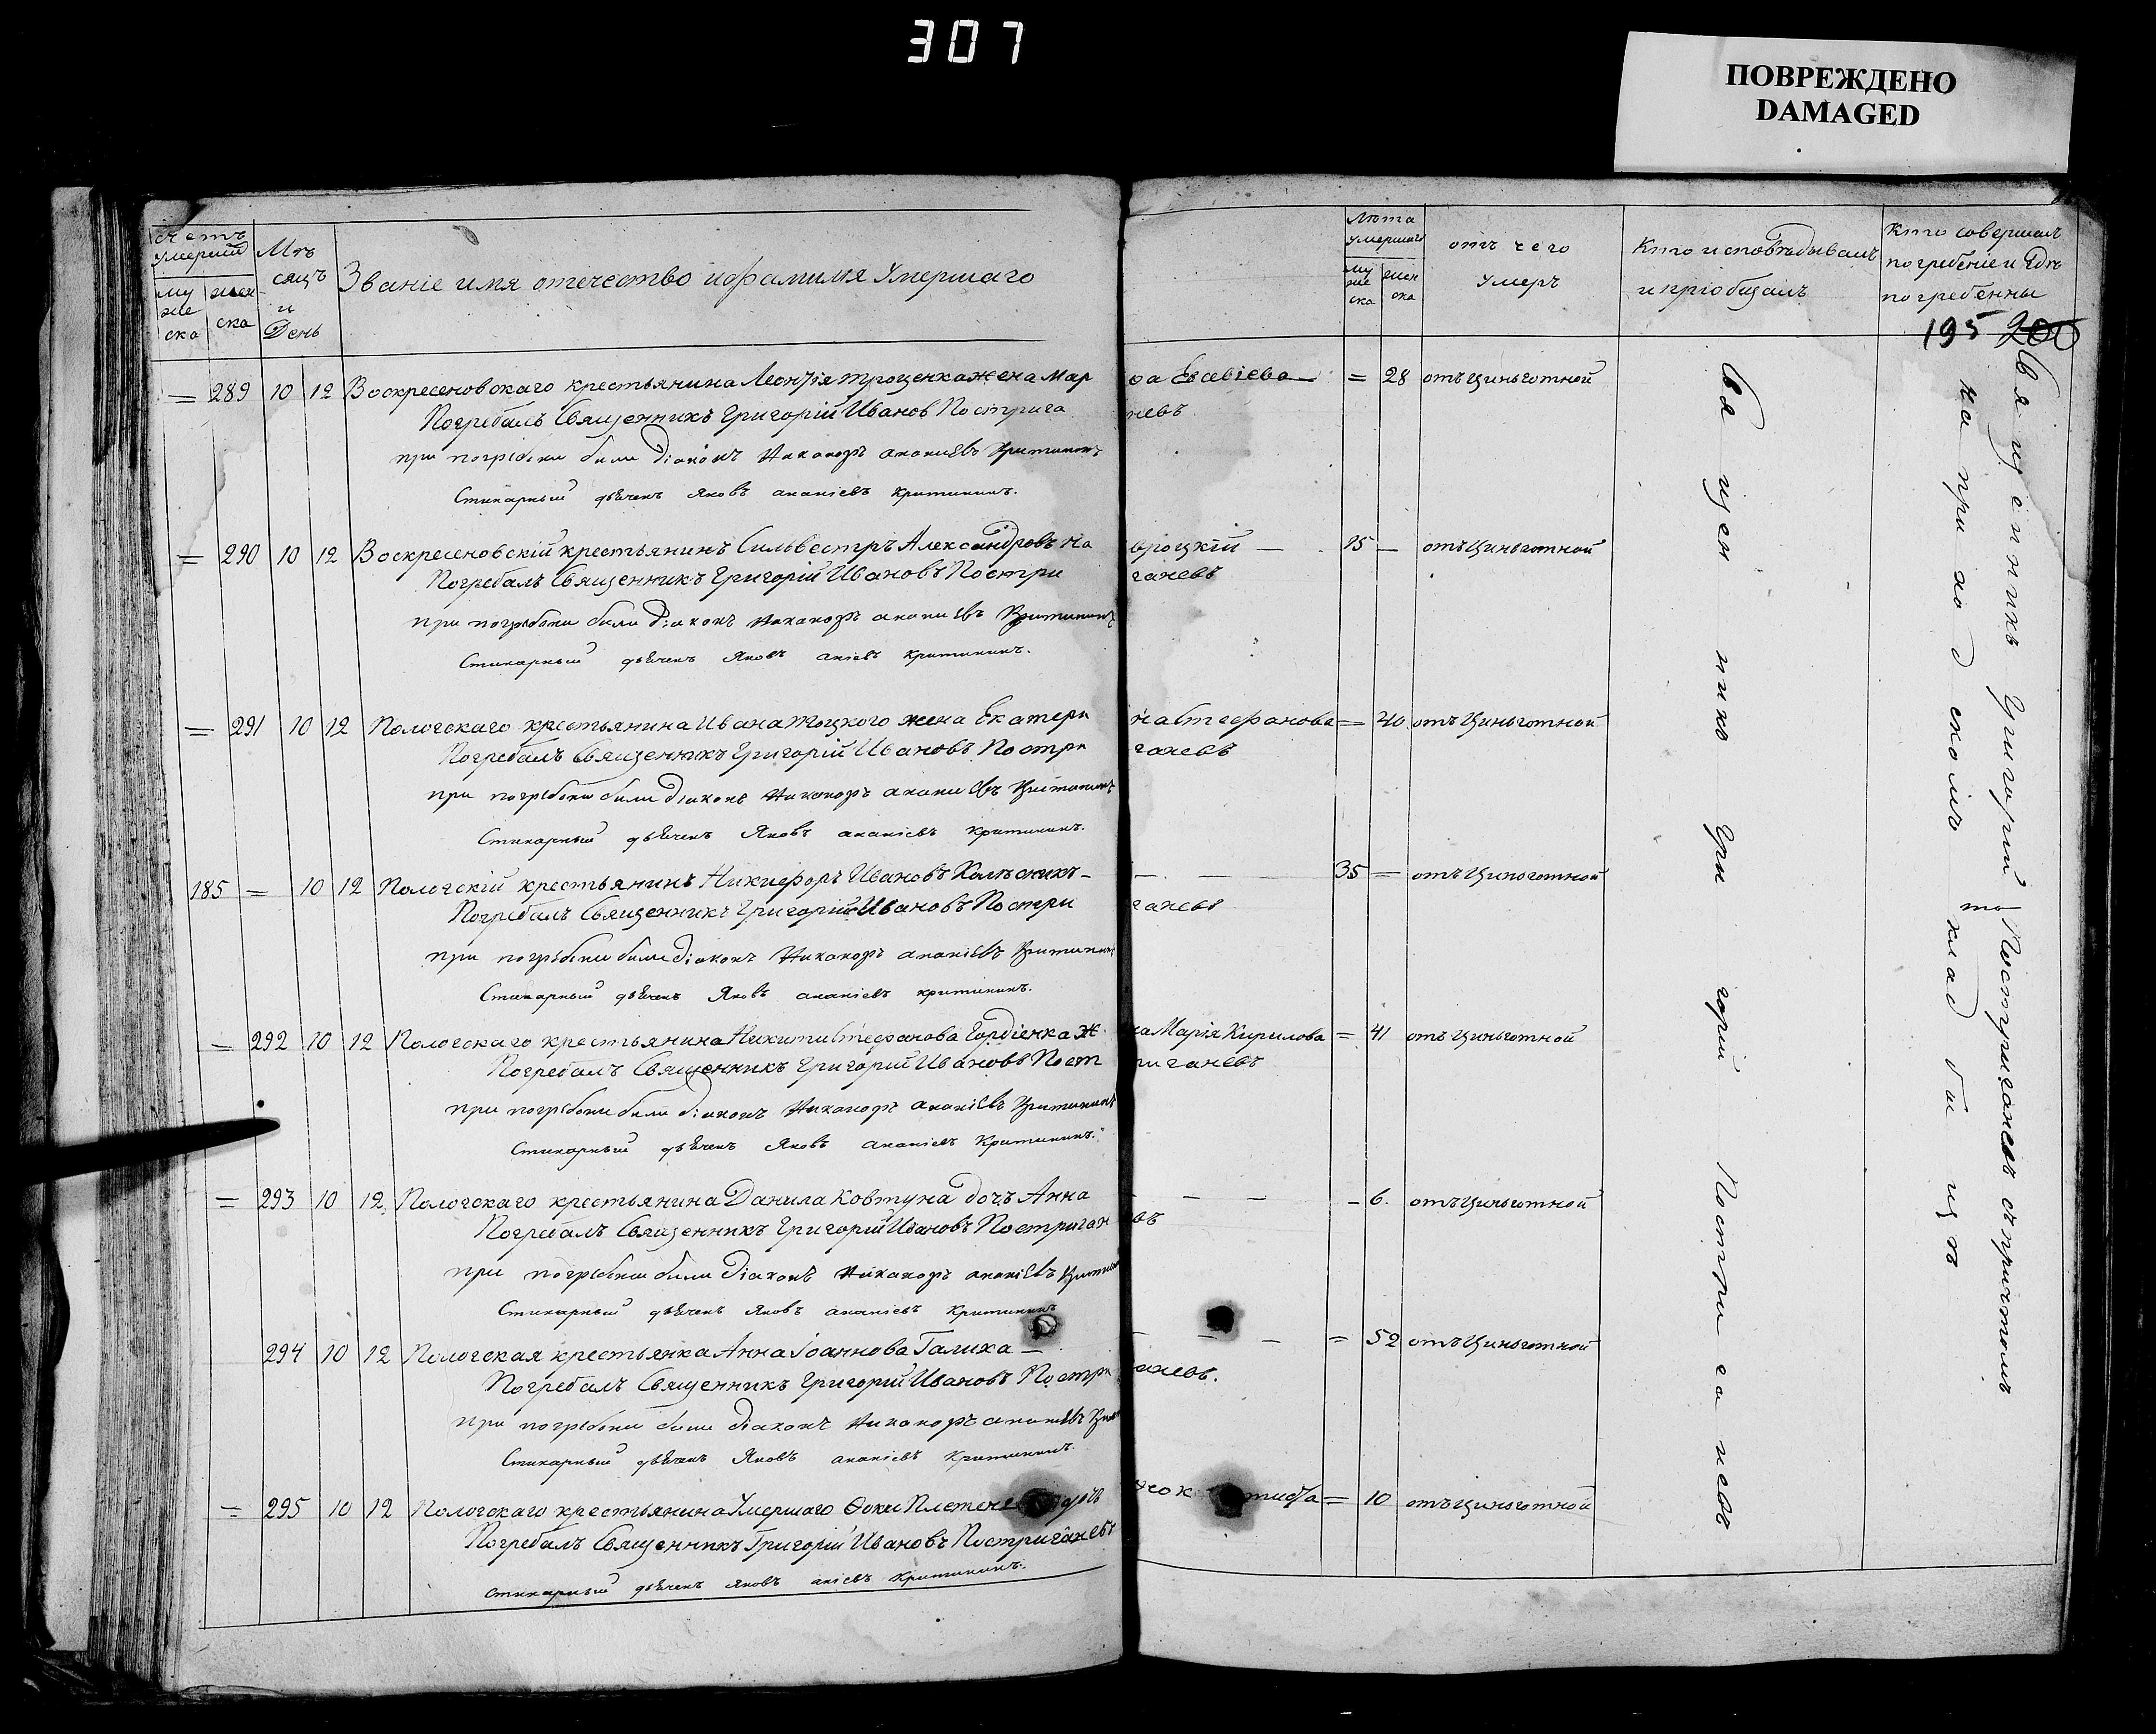 307
ПОВРЕЖДЕНО
DAMAGED
Счетъ умерших
муже ска
женска
Мѣсяцъ и День
Званіе имя отечество и фамилія Умершаго
Лѣта умершаго
муже ска
женска
отъ чего умеръ
Кто исповѣдывалъ и пріобщалъ
Кто совершалъ погребеніе и гдѣ погребенны
195 200
= 289 10 12 Воскресеновскаго крестьянина Леонтія Троценка жена Мар
ѳа Евсевіева = 28 отъ Цынготной
Погребалъ Священникъ Григорій Иванов Построга
невъ
при погребени были Діаконъ Никаноръ ананиевъ Критининъ
Стихарный дьячекъ Яковъ ананіевъ Критининъ.
= 290 10 12 Воскресеновскій крестьянинъ Сильвестръ Александровъ На
вроцкій 15 — отъ Цынготной
Погребалъ Священникъ Григорій Ивановъ Постри
ганевъ
при погребени были Діаконъ Никаноръ ананиевъ Критининъ
Стихарный дьячекъ Яковъ аніевъ Критининъ.
= 291 10 12 Пологскаго крестьянина Ивана Троцкого жена Екатери
на Стефанова = 40 отъ Цынготной
Погребалъ Священникъ Григорій Ивановъ Постри
ганевъ
при погребени были Діаконъ Никаноръ ананиевъ Критининъ
Стихарный дьячекъ Яковъ ананіевъ Критининъ.
185 = 10 12 Пологскій крестьянинъ Никифоръ Ивановъ Колѣсникъ —
— 35 — отъ Цынготной
Погребалъ Священникъ Григорій Ивановъ Постри
ганевъ
при погребени были Діаконъ Никаноръ ананіевъ Критининъ
Стихарный дьячекъ Яковъ ананіевъ Критининъ.
= 292 10 12 Пологскаго крестьянина Никити Стефанова Гордіенка ж
на Марія Кирилова = 41 отъ Цынготной
Погребалъ Священникъ Григорій Ивановъ Пост
риганевъ
при погребени были Діаконъ Никаноръ ананіевъ Критининъ
Стихарный дьячекъ Яковъ ананіевъ Критининъ.
= 293 10 12 Пологскаго крестьянина Данила Ковтуна дочъ Анна
— — — 6. отъ Цынготной
Погребалъ Священникъ Григорій Ивановъ Постриган
евъ
при погребени были Діаконъ Никаноръ ананіевъ Критинин
Стихарный дьячекъ Яковъ ананіевъ Критининъ
294 10 12 Пологская крестьянка Анна Іоаннова Галиха —
— — — = 52 отъ Цынготной
Погребалъ Священникъ Григорій Ивановъ Постри
ганевъ.
при погребени были Діаконъ Никаноръ ананіевъ Крит
Стихарный дьячекъ Яковъ ананіевъ Критининъ.
= 295 10 12 Пологскаго крестьянина Умершаго Ѳоки Плетене дочъ
= 10 отъ Цынготной
Погребалъ Священникъ Григорій Ивановъ Постриганевъ
Стихарный дьячекъ Яковъ аніевъ Критининъ.
Священникъ Григорій Постриганевъ
Священникъ Григорій Постриганевъ съ причтомъ
на приходскомъ кладбищѣ